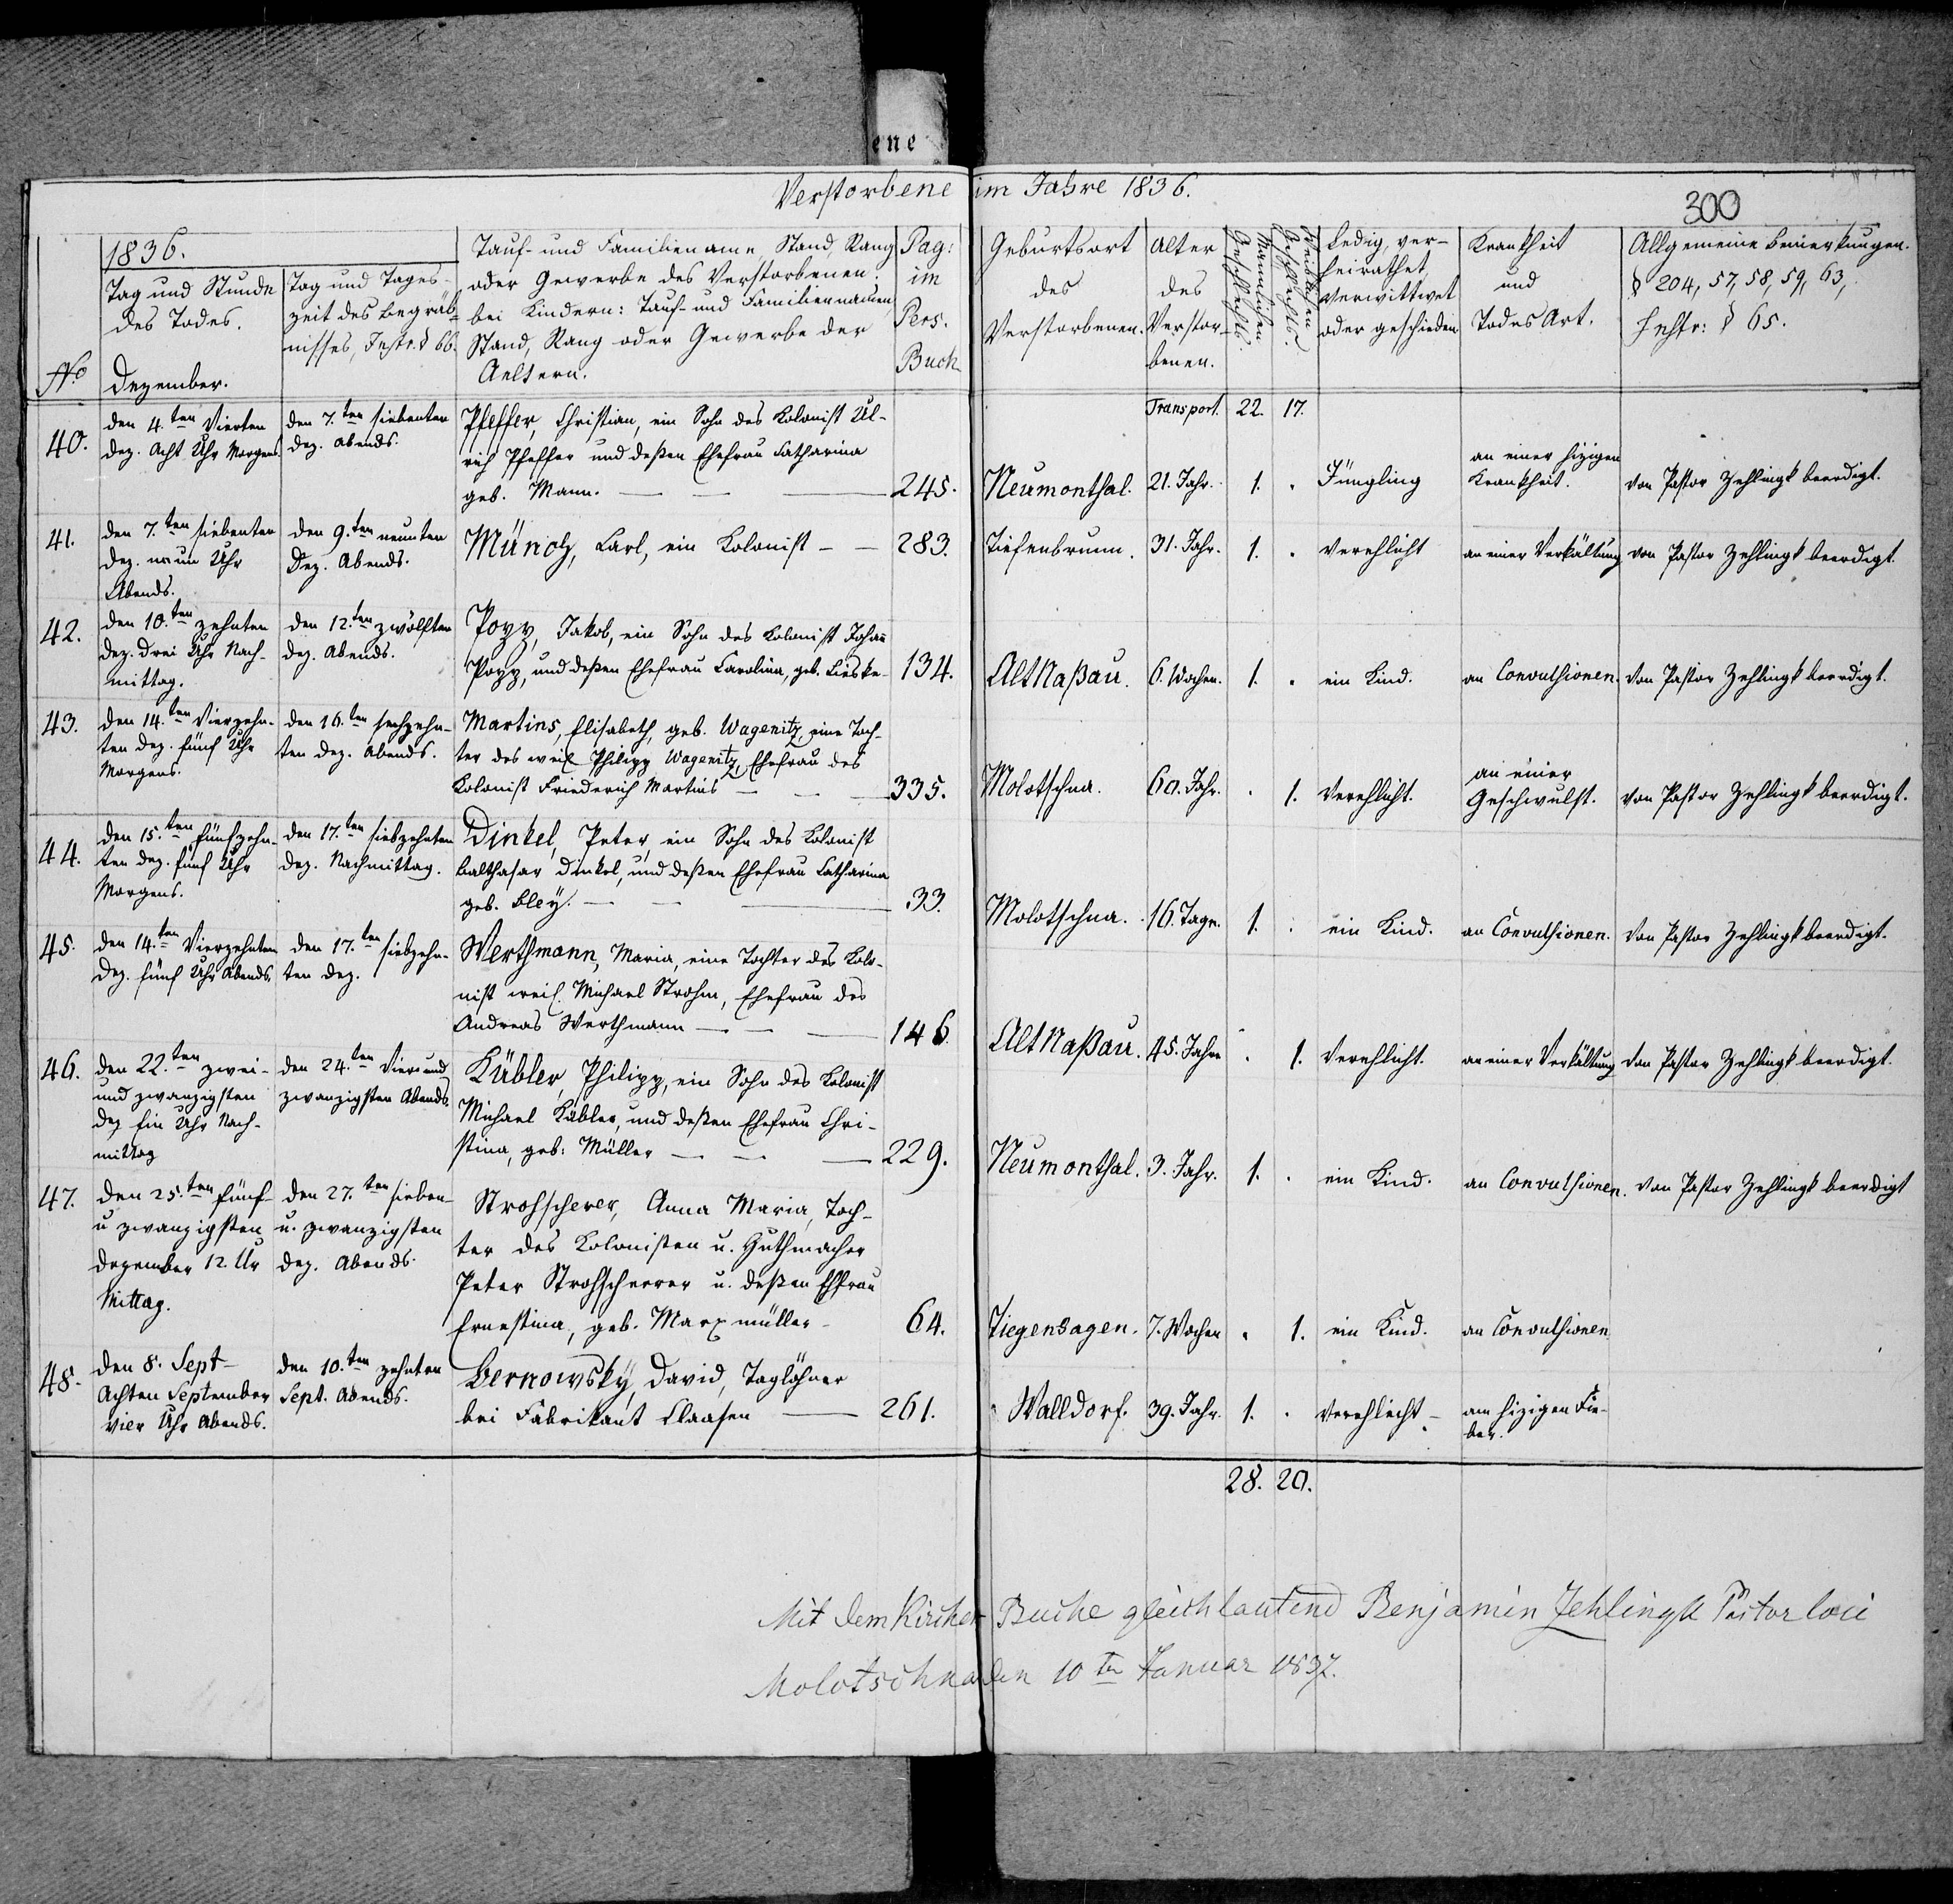 ene
Verstorbene im Jahre 1836.
300
1836.
Tag und Stunde
des Todes.
No
Dezember.
Tag und Tages-
zeit des Begräb-
nisses, Instr. § 66.
Tauf- und Familienname, Stand, Rang
oder Gewerbe des Verstorbenen.
bei Kindern: Tauf- und Familiennamen,
Stand, Rang oder Gewerbe der
Aeltern.
Pag:
im
Pers.
Buch
Geburtsort
des
Verstorbenen.
Alter
des
Verstor-
benen.
Männlichen
Geschlechts.
Weiblichen
Geschlechts.
Ledig, ver-
heirathet,
verwittwet
oder geschieden
Krankheit
und
Todes Art.
Allgemeine Bemerkungen.
§ 204, 57, 58, 59, 63,
Instr: § 65.
Transport. 22. 17.
40.
den 4.ten Vierten
Dez. Acht Uhr Morgens.
den 7.ten siebenten
Dez. Abends.
Pfeffer, Christian, ein Sohn des Kolonist Ul-
rich Pfeffer und deßen Ehefrau Catharina
geb. Mann. 245.
Neumonthal. 21. Jahr. 1. . Jüngling
an einer hizigen
Krankheit.
von Pastor Zehlingk beerdigt.
41.
den 7.ten siebenten
Dez. neun Uhr
Abends.
den 9.ten neunten
Dez. Abends.
Münch, Carl, ein Kolonist 283.
Tiefenbrunn. 31. Jahr. 1. . Verehlicht an einer Verkältung von Pastor Zehlingk beerdigt.
42.
den 10.ten zehnten
Dez. drei Uhr Nach-
mittag.
den 12.ten zwölften
Dez. Abends.
Popp, Jakob, ein Sohn des Kolonist Johan
Popp, und deßen Ehefrau Carolina, geb. Lieske 134.
Alt Naßau. 6. Wochen. 1. . ein Kind. an Convulsionen. von Pastor Zehlingk beerdigt.
43.
den 14.ten Vierzehn-
ten Dez. fünf Uhr
Morgens.
den 16.ten sechzehn-
ten Dez. Abends.
Martins, Elisabeth, geb. Wagenitz, eine Toch-
ter des weil Philipp Wagenitz, Ehefrau des
Kolonist Friederich Martins 335.
Molotschna. 60. Jahr. . 1. Verehlicht.
an einer
Geschwulst.
von Pastor Zehlingk beerdigt.
44.
den 15.ten fünfzehn-
ten Dez. fünf Uhr
Morgens.
den 17.ten siebzehnten
Dez. Nachmittag.
Dinkel, Peter, ein Sohn des Kolonist
Balthasar Dinkel, und deßen Ehefrau Catharina
geb. Bleÿ. 33.
Molotschna. 16. Tage. 1. . ein Kind. an Convulsionen. von Pastor Zehlingk beerdigt.
45.
den 14.ten Vierzehnten
Dez. fünf Uhr Abends.
den 17.ten siebzehn-
ten Dez.
Werthmann, Maria, eine Tochter des Kolo-
nist weil. Michael Strohm, Ehefrau des
Andreas Werthmann 146.
Alt Naßau. 45. Jahre . 1. Verehlicht. an einer Verkältung von Pastor Zehlingk beerdigt.
46.
den 22.ten zwei-
und zwanzigsten
Dez Ein Uhr Nach-
mittag
den 24.ten Vier und
zwanzigsten Abends.
Kübler, Philipp, ein Sohn des Kolonist
Michael Kübler, und deßen Ehefrau Chri-
stina, geb: Müller 229.
Neumonthal. 3. Jahr. 1. . ein Kind. an Convulsionen. von Pastor Zehlingk beerdigt
47.
den 25.ten fünf-
u zwanzigsten
Dezember 12. Ur
Mittag.
den 27.ten sieben-
u. zwanzigsten
Dez. Abends.
Strohscherer, Anna Maria, Toch-
ter des Kolonisten u. Huthmacher
Peter Strohscherrer u. deßen Ehfrau
Ernestina, geb. Marxmüller 64.
Tiegenhagen. 7. Wochen . 1. ein Kind. an Convulsionen
48.
den 8. Sept-
Achten September
vier Uhr Abends.
den 10.ten zehnten
Sept. Abends.
Bernowskÿ, David, Taglöhner
bei Fabrikant Claasen 261.
Walldorf. 39. Jahr. 1. . Verehlicht
am hizigen Fie-
ber.
28. 20.
Mit dem Kirchen Buche gleichlautend Benjamin Zehlingk Pastor loci
Molotschna den 10ten Januar 1837.